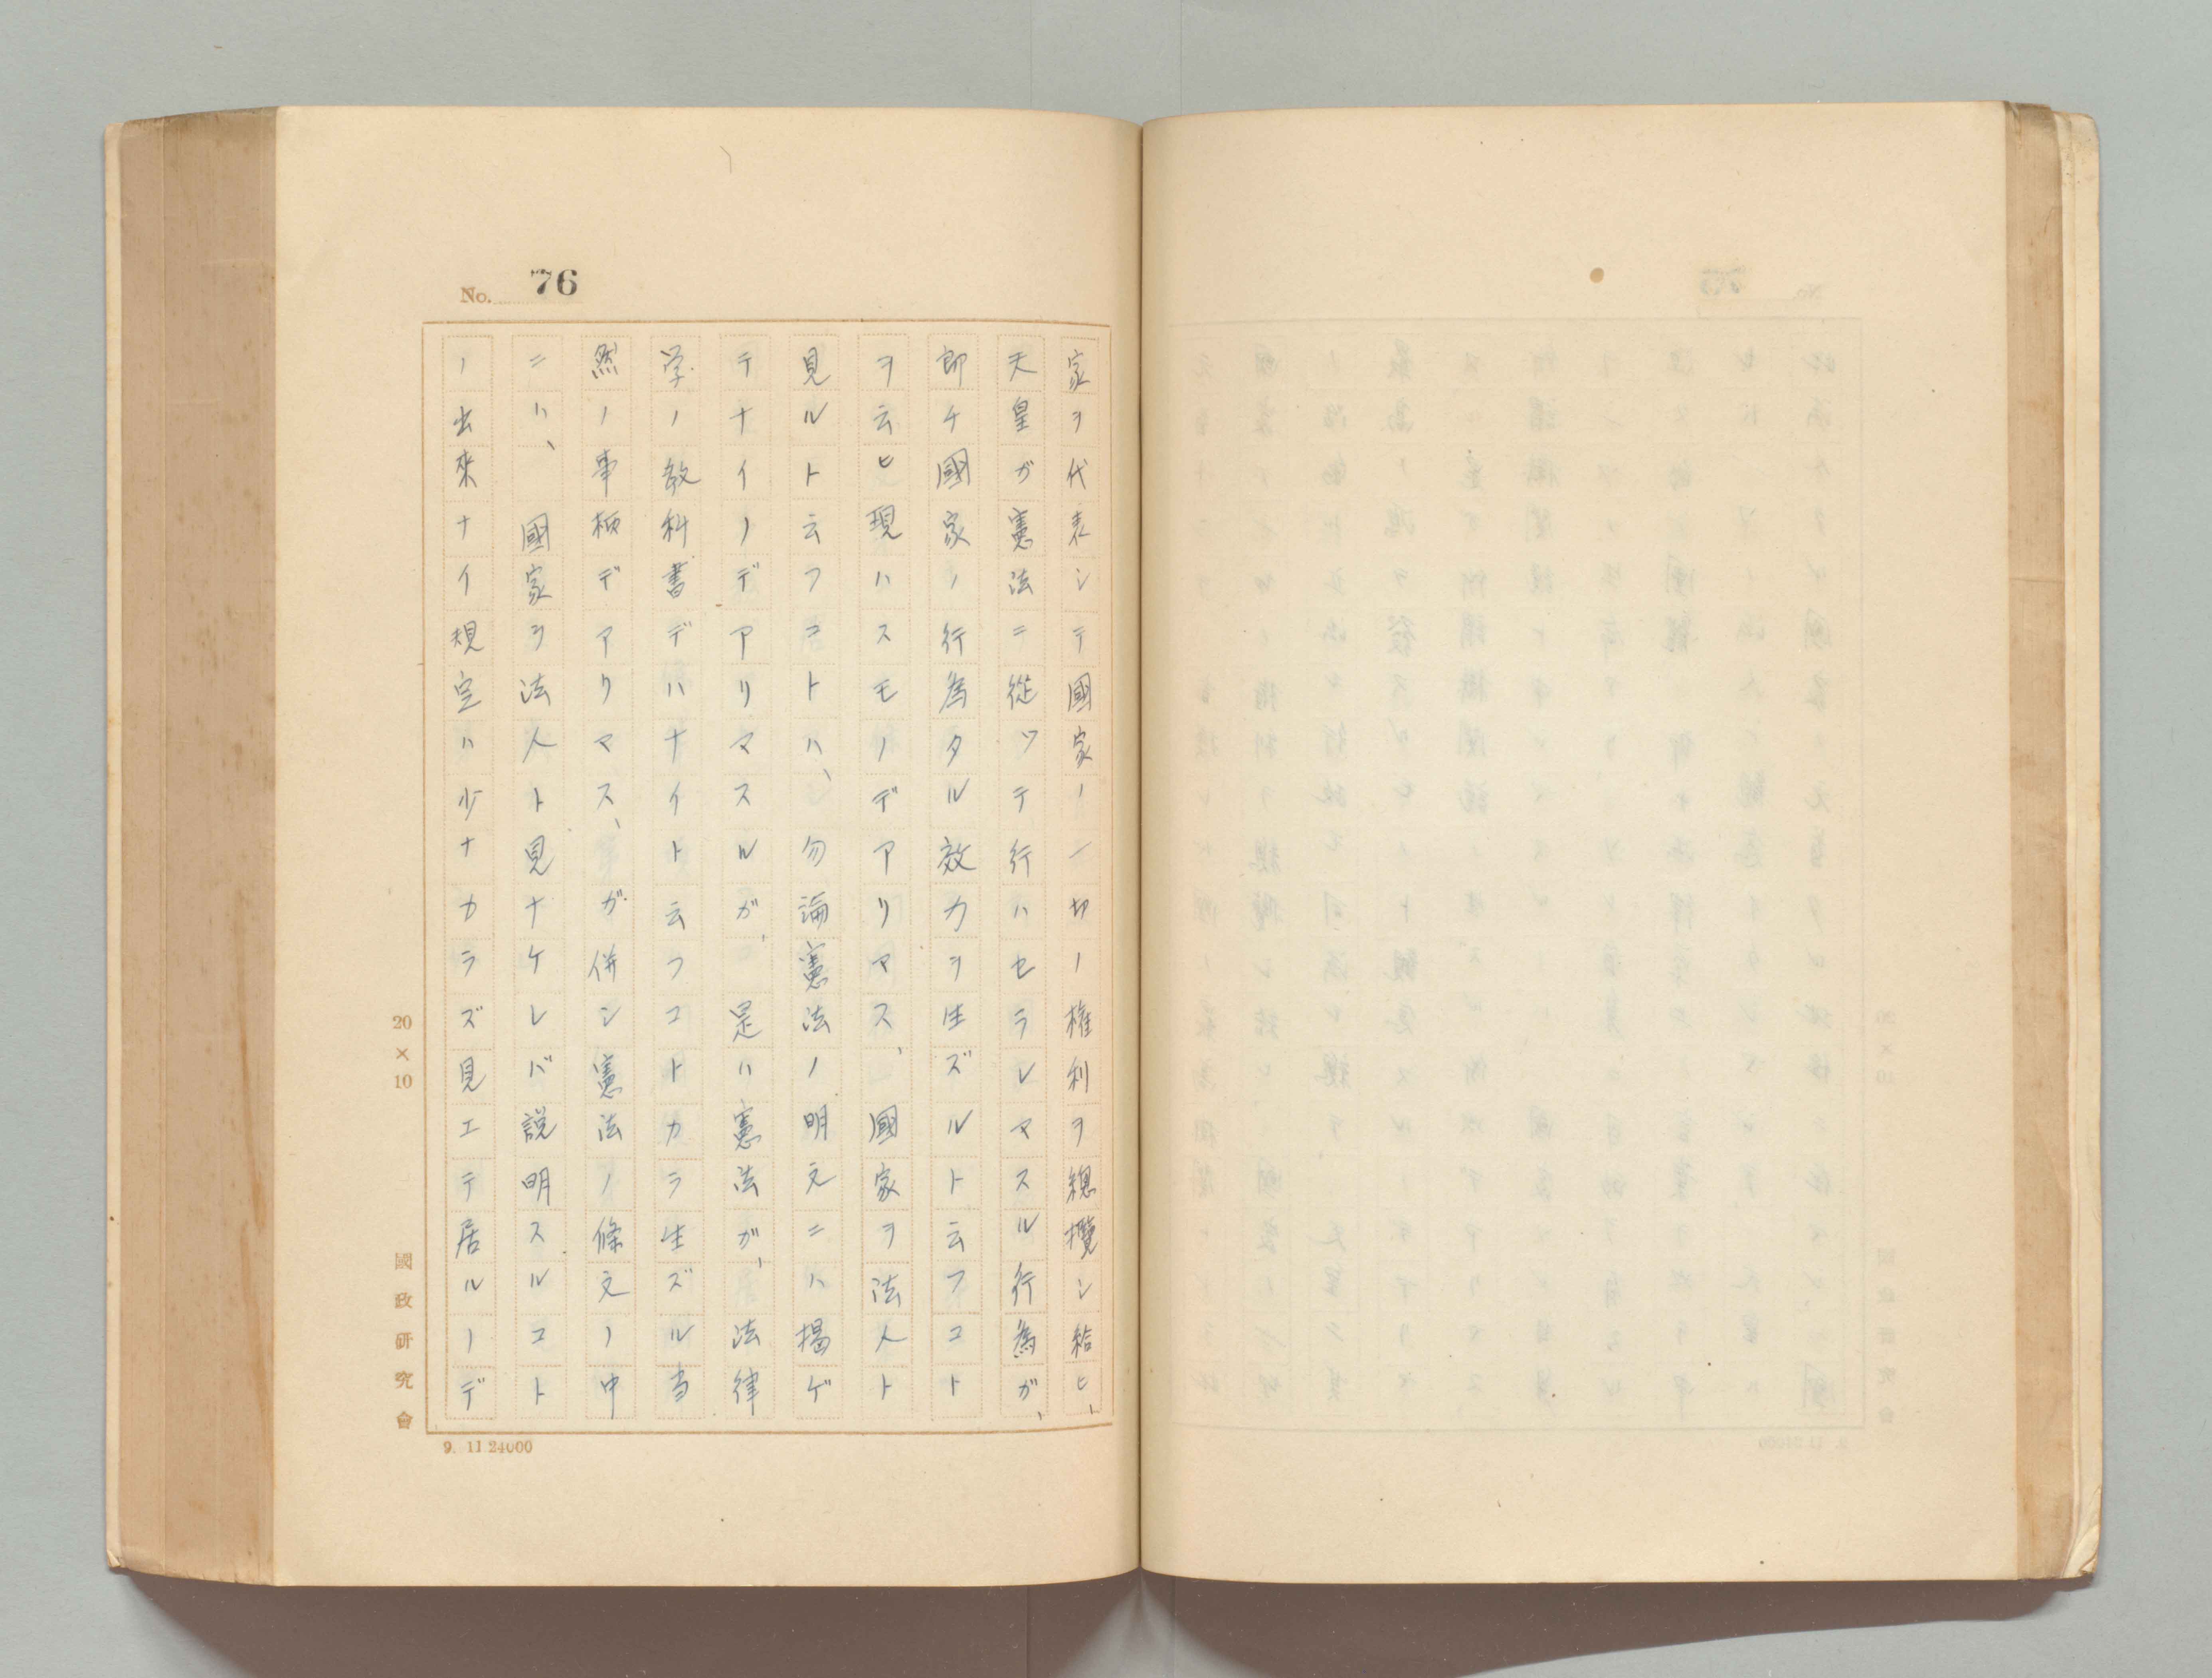 No. 76
家ヲ代表シテ國家ノ一切ノ権利ヲ總攬シ給ヒ、
天皇ガ憲法ニ從ツテ行ハセラレマスル行為ガ、
即チ國家ノ行為タル效力ヲ生ズルト云フコト
ヲ云ヒ現ハスモノデアリマス、國家ヲ法人ト
見ルト云フコトハ、勿論憲法ノ明文ニハ揭ゲ
テナイノデアリマスルガ、是ハ憲法ガ、法律
学ノ教科書デハナイト云フコトカラ生ズル当
然ノ事柄デアリマス、ガ併シ憲法ノ條文ノ中
ニハ、國家ヲ法人ト見ナケレバ説明スルコト
ノ出來ナイ規定ハ少ナカラズ見エテ居ルノデ
20×10
國政研究會
9. 11.24000